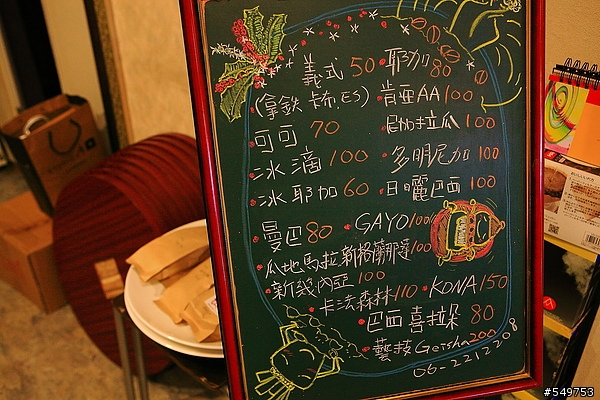 義式 50 • 耶加 80
(拿鐵 卡布,ES) • 肯亞AA 100
• 可可 70 • 尼加拉瓜 100
• 冰滴 100 • 多明尼加 100
• 冰耶加 60 • 日曬巴西 100
• 曼巴 80 • GAYO 100
• 瓜地馬拉新格蘭那達 100
• 新幾內亞 100
• 卡法森林 110 • KONA 150
• 巴西喜拉朵 80
• 藝技Geisha 200
06-2212208
#549753